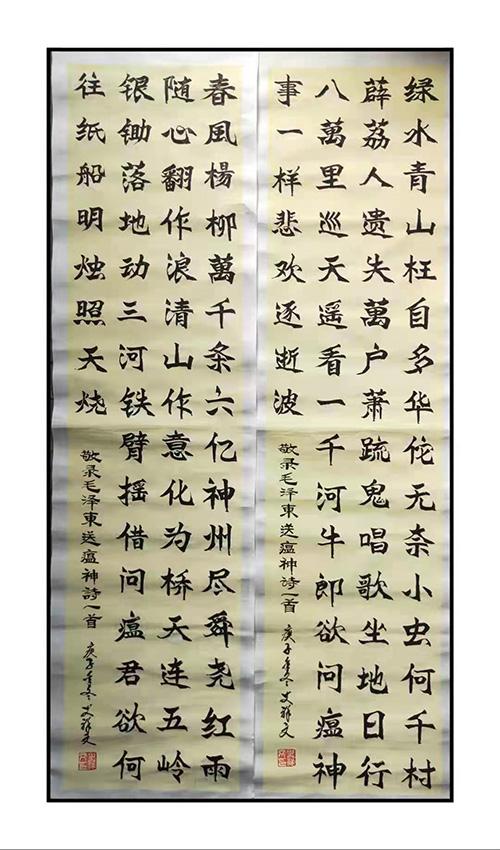 绿水青山枉自多华佗无奈小虫何千村
薜荔人遗失萬户萧疏鬼唱歌坐地日行
八萬里巡天遥看一千河牛郎欲问瘟神
事一样悲欢逐逝波
敬录毛泽東送瘟神詩一首
庚子冬
春風楊柳萬千条六亿神州尽舜尧红雨
随心翻作浪清山作意化为桥天连五岭
银锄落地动三河铁臂摇借问瘟君欲何
往纸船明烛照天烧
敬录毛泽東送瘟神詩一首
庚子冬